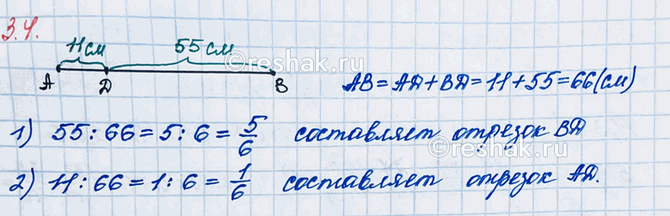 3.4.
11 см 55 см
А D В
AB = AD + BD = 11 + 55 = 66 (см)
1) 55 : 66 = 5 : 6 = 5/6 составляет отрезок BD
2) 11 : 66 = 1 : 6 = 1/6 составляет отрезок AD.
©reshak.ru